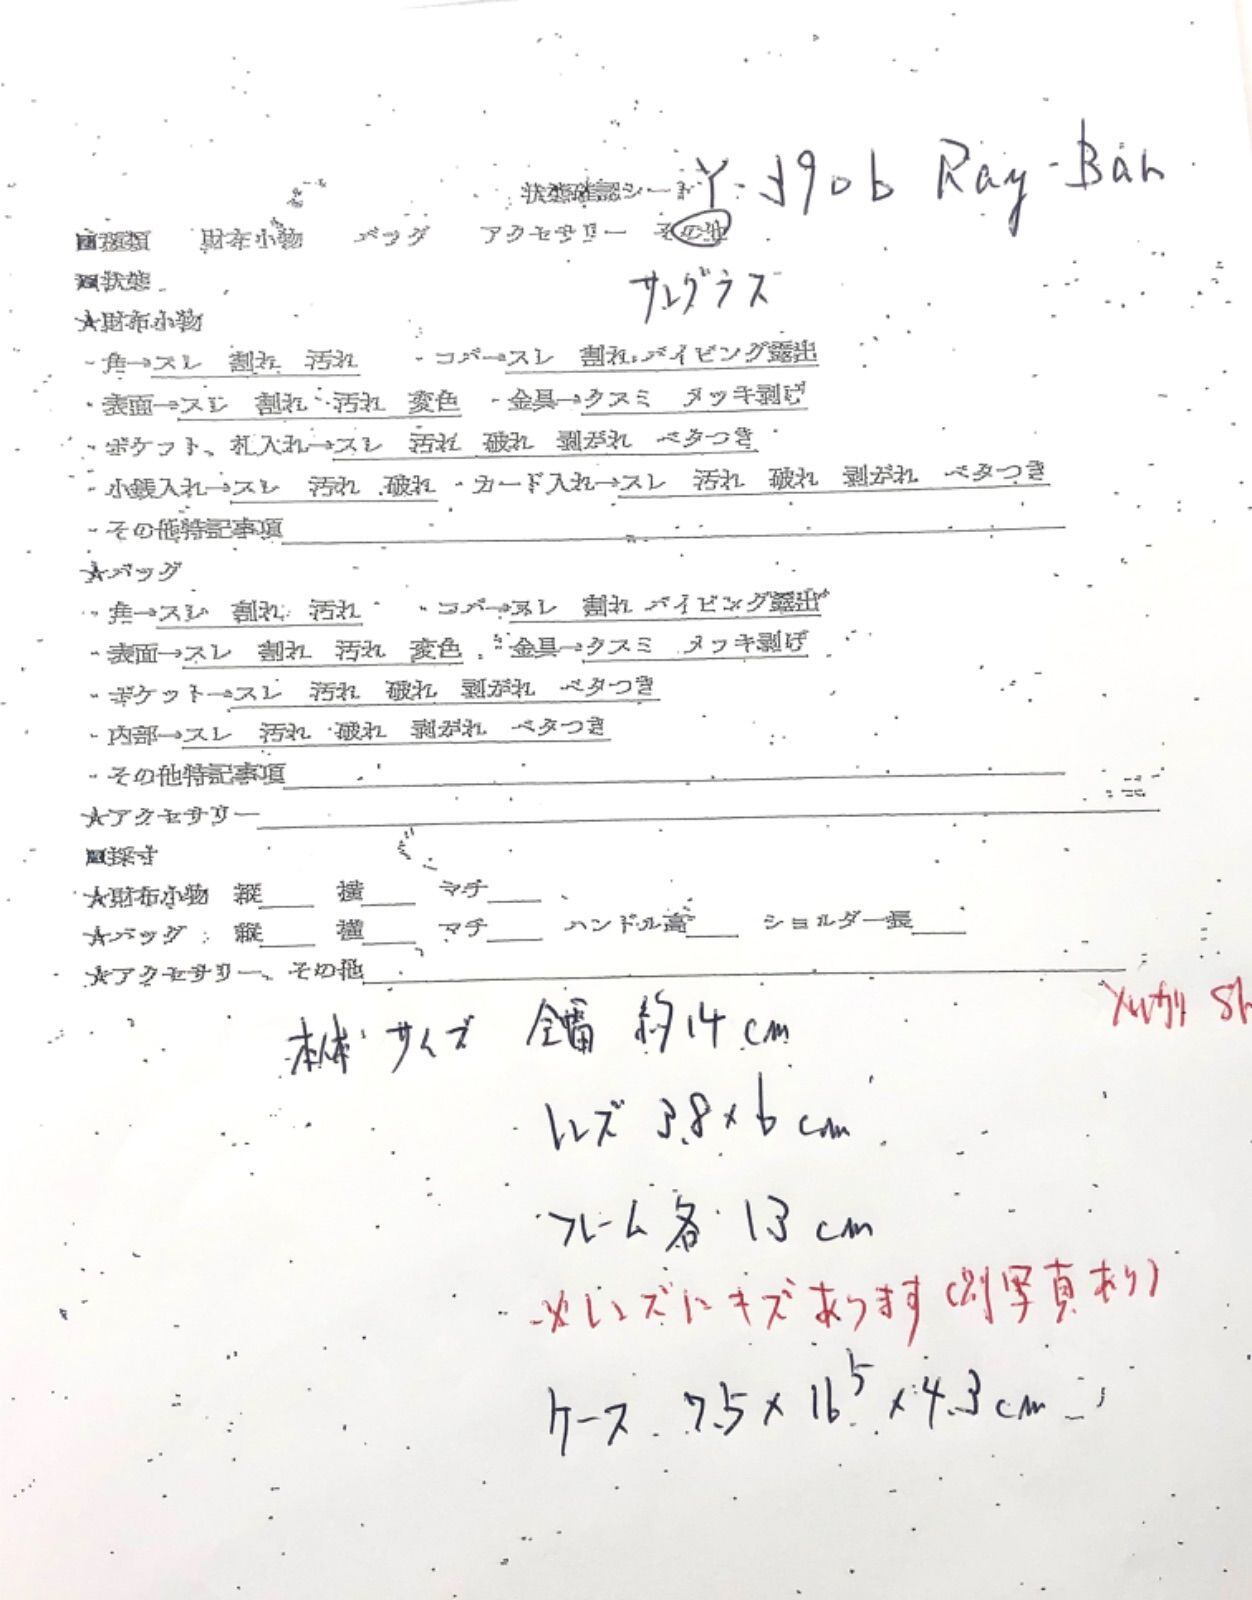 状態確認シート Y-3906 Ray-Ban
■種類 財布小物 バッグ アクセサリー その他
サングラス
■状態
★財布小物
・角→スレ 割れ 汚れ ・コバ→スレ 割れ パイピング露出
・表面→スレ 割れ 汚れ 変色 ・金具→クスミ メッキ剥げ
・ポケット、札入れ→スレ 汚れ 破れ 剥がれ ベタつき
・小銭入れ→スレ 汚れ 破れ ・カード入れ→スレ 汚れ 破れ 剥がれ ベタつき
・その他特記事項
★バッグ
・角→スレ 割れ 汚れ ・コバ→スレ 割れ パイピング露出
・表面→スレ 割れ 汚れ 変色 ・金具→クスミ メッキ剥げ
・ポケット→スレ 汚れ 破れ 剥がれ ベタつき
・内部→スレ 汚れ 破れ 剥がれ ベタつき
・その他特記事項
★アクセサリー
■採寸
★財布小物 縦 横 マチ
★バッグ 縦 横 マチ ハンドル高 ショルダー長
★アクセサリー、その他
メルカリ Sh
本体サイズ 全幅 約14cm
レンズ 3.8×6cm
フレーム各 13cm
※レンズにキズあります(別写真あり)
ケース 7.5×16⁵×4.3cm